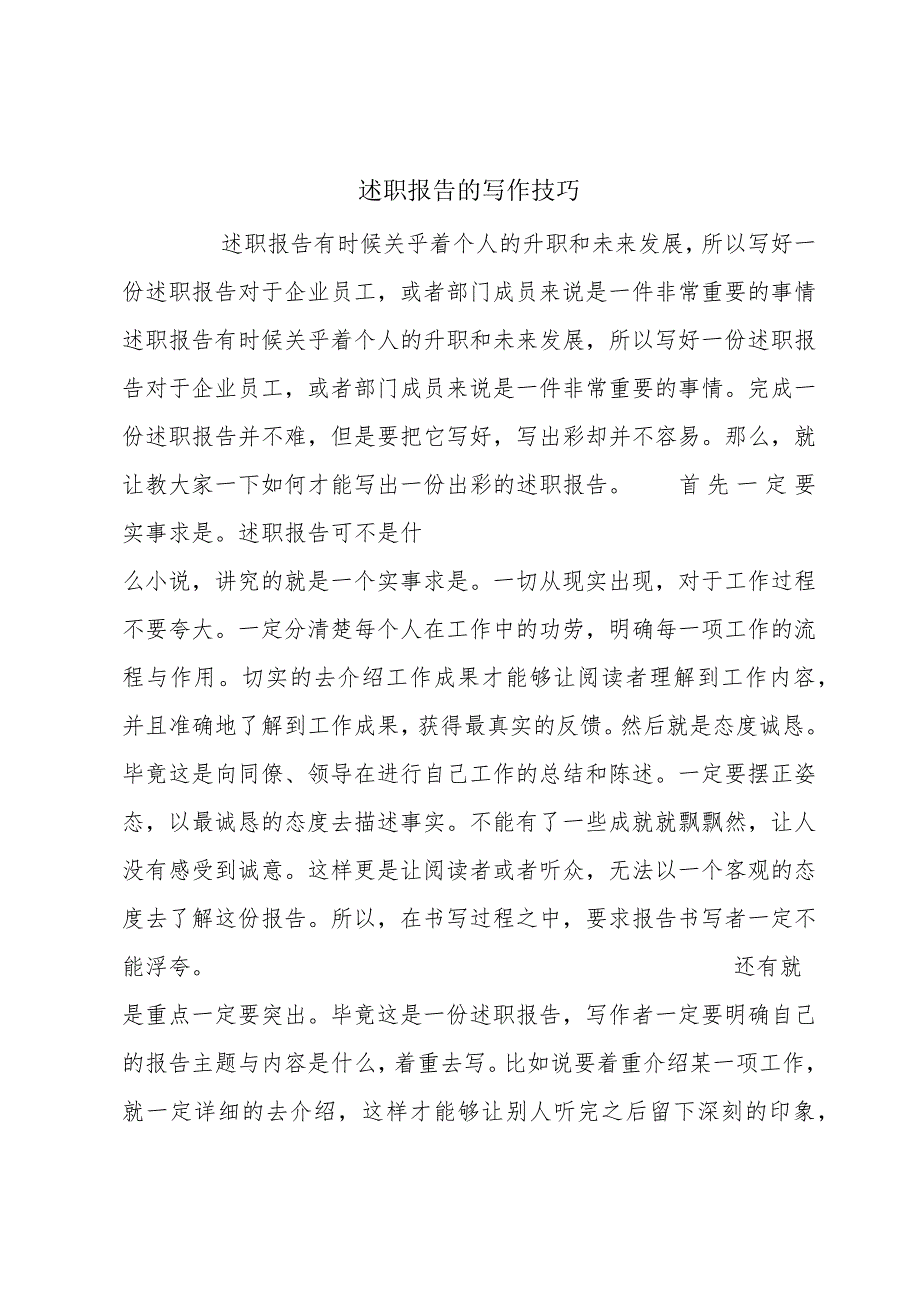 述职报告的写作技巧
述职报告有时候关乎着个人的升职和未来发展，所以写好一
份述职报告对于企业员工，或者部门成员来说是一件非常重要的事情
述职报告有时候关乎着个人的升职和未来发展，所以写好一份述职报
告对于企业员工，或者部门成员来说是一件非常重要的事情。完成一
份述职报告并不难，但是要把它写好，写出彩却并不容易。那么，就
让教大家一下如何才能写出一份出彩的述职报告。 首先一定要
实事求是。述职报告可不是什
么小说，讲究的就是一个实事求是。一切从现实出现，对于工作过程
不要夸大。一定分清楚每个人在工作中的功劳，明确每一项工作的流
程与作用。切实的去介绍工作成果才能够让阅读者理解到工作内容，
并且准确地了解到工作成果，获得最真实的反馈。然后就是态度诚恳。
毕竟这是向同僚、领导在进行自己工作的总结和陈述。一定要摆正姿
态，以最诚恳的态度去描述事实。不能有了一些成就就飘飘然，让人
没有感受到诚意。这样更是让阅读者或者听众，无法以一个客观的态
度去了解这份报告。所以，在书写过程之中，要求报告书写者一定不
能浮夸。 还有就
是重点一定要突出。毕竟这是一份述职报告，写作者一定要明确自己
的报告主题与内容是什么，着重去写。比如说要着重介绍某一项工作，
就一定详细的去介绍，这样才能够让别人听完之后留下深刻的印象，